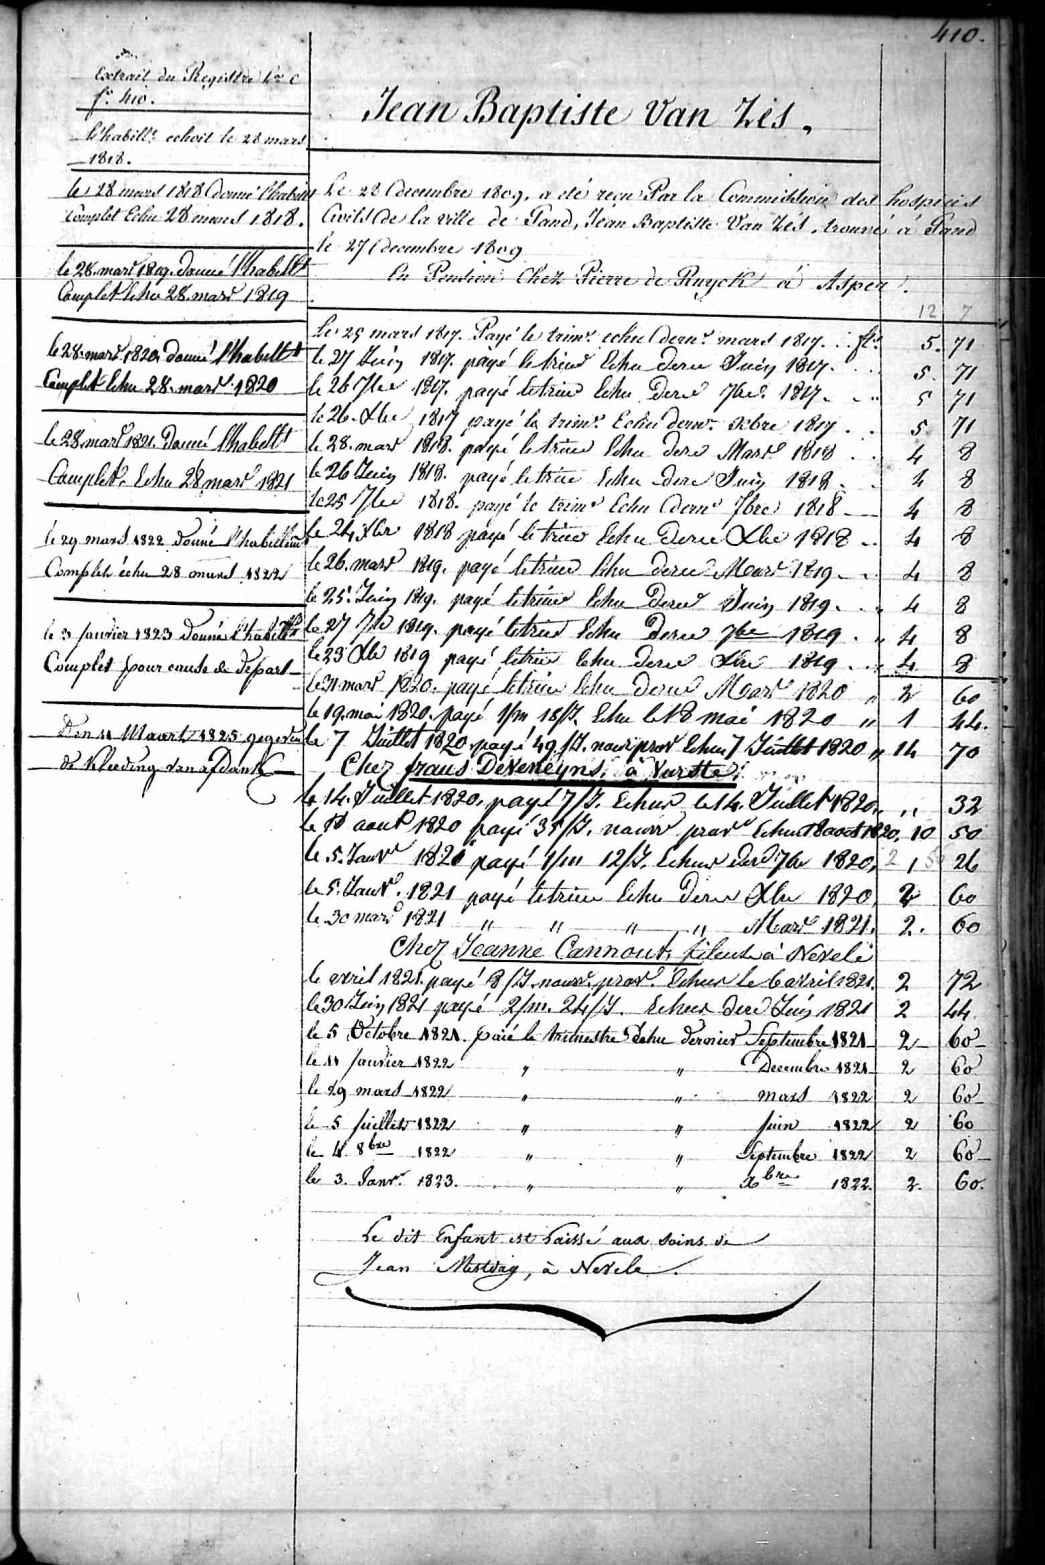 410.
Extrait du Registre Lre C
f° 410.
l'habillt echoit le 28 mars
1818.
le 28 mars 1818 donné l'habillt
complet Echu 28 mars 1818.
le 28 mars 1819 donné l'habillt
Complet Echu 28 mars 1819
le 28 mars 1820 donné l'habillt
Complet Echu 28 mars 1820
le 28 mars 1821 donné l'habillt
Complet Echu 28 mars 1821
le 29 mars 1822 donné l'habillem
Complet échu 28 mars 1822
le 3 janvier 1823 donné l'habillt
Complet pour cause de départ
Den 11 Maart 1825 gegeven
de kleeding van afdank
Jean Baptiste Van Zès.
Le 28 decembre 1809. a été reçu Par la Commission des hospices
Civils de la ville de Gand, Jean Baptiste Van Zès, trouvé à Gand
le 27 decembre 1809
En Pension Chez Pierre de Ruyck à Asper.
12 7
Le 25 mars 1817. Payé le trimr echu dernr mars 1817. . fls 5. 71
le 27 Juin 1817. payé le trim Echu derr Juin 1817. . . 5. 71
le 26 7bre 1817. payé le trim Echu derr 7bre 1817. . . " 5 71
le 26 Xbre 1817 payé le trimr Echu dernr xbre 1817 . . 5. 71
le 28. mars 1818. payé le trim Echu derr Mars 1818 . . 4 8
le 26 Juin 1818. payé le trim Echu derr Juin 1818. . 4 8
le 25 7bre 1818. payé le trimr Echu dernr 7bre 1818 4 8
le 24 xbr 1818 payé le trim Echu derr Xbre 1818 . . 4 8
le 26. mars 1819. payé le trim Echu derr Mars 1819 . 4 8
le 25. Juin 1819. payé le trim Echu derr Juin 1819. . " 4 8
le 27 7br 1819. payé le trim Echu derr 7bre 1819 . " 4 8
le 23 Xbr 1819 payé le trim Echu derr Xbre 1819 . . " 4. 8
le 31 mars 1820. payé le trim Echu derr Mars 1820 " 2 60
le 19. mai 1820. payé 1/m 18/J. Echu le 18 mai 1820 " 1 44.
le 7 Juillet 1820. payé 49/J. nourr prov Echu 7 Juillet 1820 " 14 70
Chez frans Deveneyns, à Vurste.
le 14. Juillet 1820. payé 7/J. Echus le 14. Juillet 1820. " 32
le 18 aout 1820 payé 35/J. nourr provr Echus 18 aout 1820. 10 50
le 5. Janvr 1820 payé 1/m 12/J. Echus derr 7br 1820, 1 26
le 5. Janvr. 1821 payé le trim Echu derr Xbr 1820 2 60
le 30 mars 1821 " " " " Mars 1821. 2. 60
Chez Jeanne Cannout, fileuse à Nevele
le avril 1821. payé 8/J. nourr. prov. Echus le 6 avril 1821. 2 72
le 30 Juin 1821 payé 2/m. 24/J. Echus derr Juin 1821 2 44
le 5 Octobre 1821. païé le trimestre Echu dernier Septembre 1821 2 60
le 11 janvier 1822 " " Decembre 1821 2 60
le 29 mars 1822 " " mars 1822 2 60
le 5 juillet 1822 " " juin 1822 2 60
le 4 8bre 1822 " " Septembre 1822 2 60
le 3. Janvr. 1823. " " xbre 1822. 2. 60.
Le dit Enfant est Laissé aux soins de
Jean Mestdag, à Nevele.